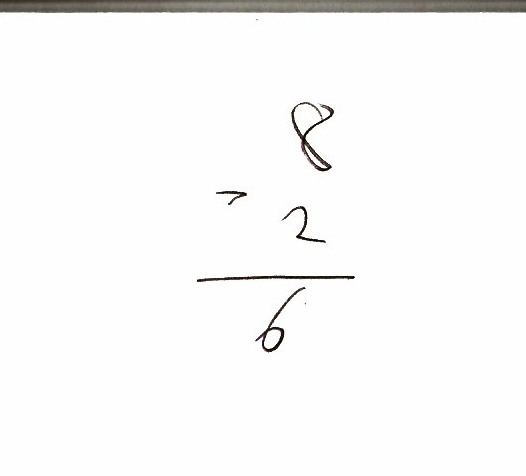 8
- 2
6